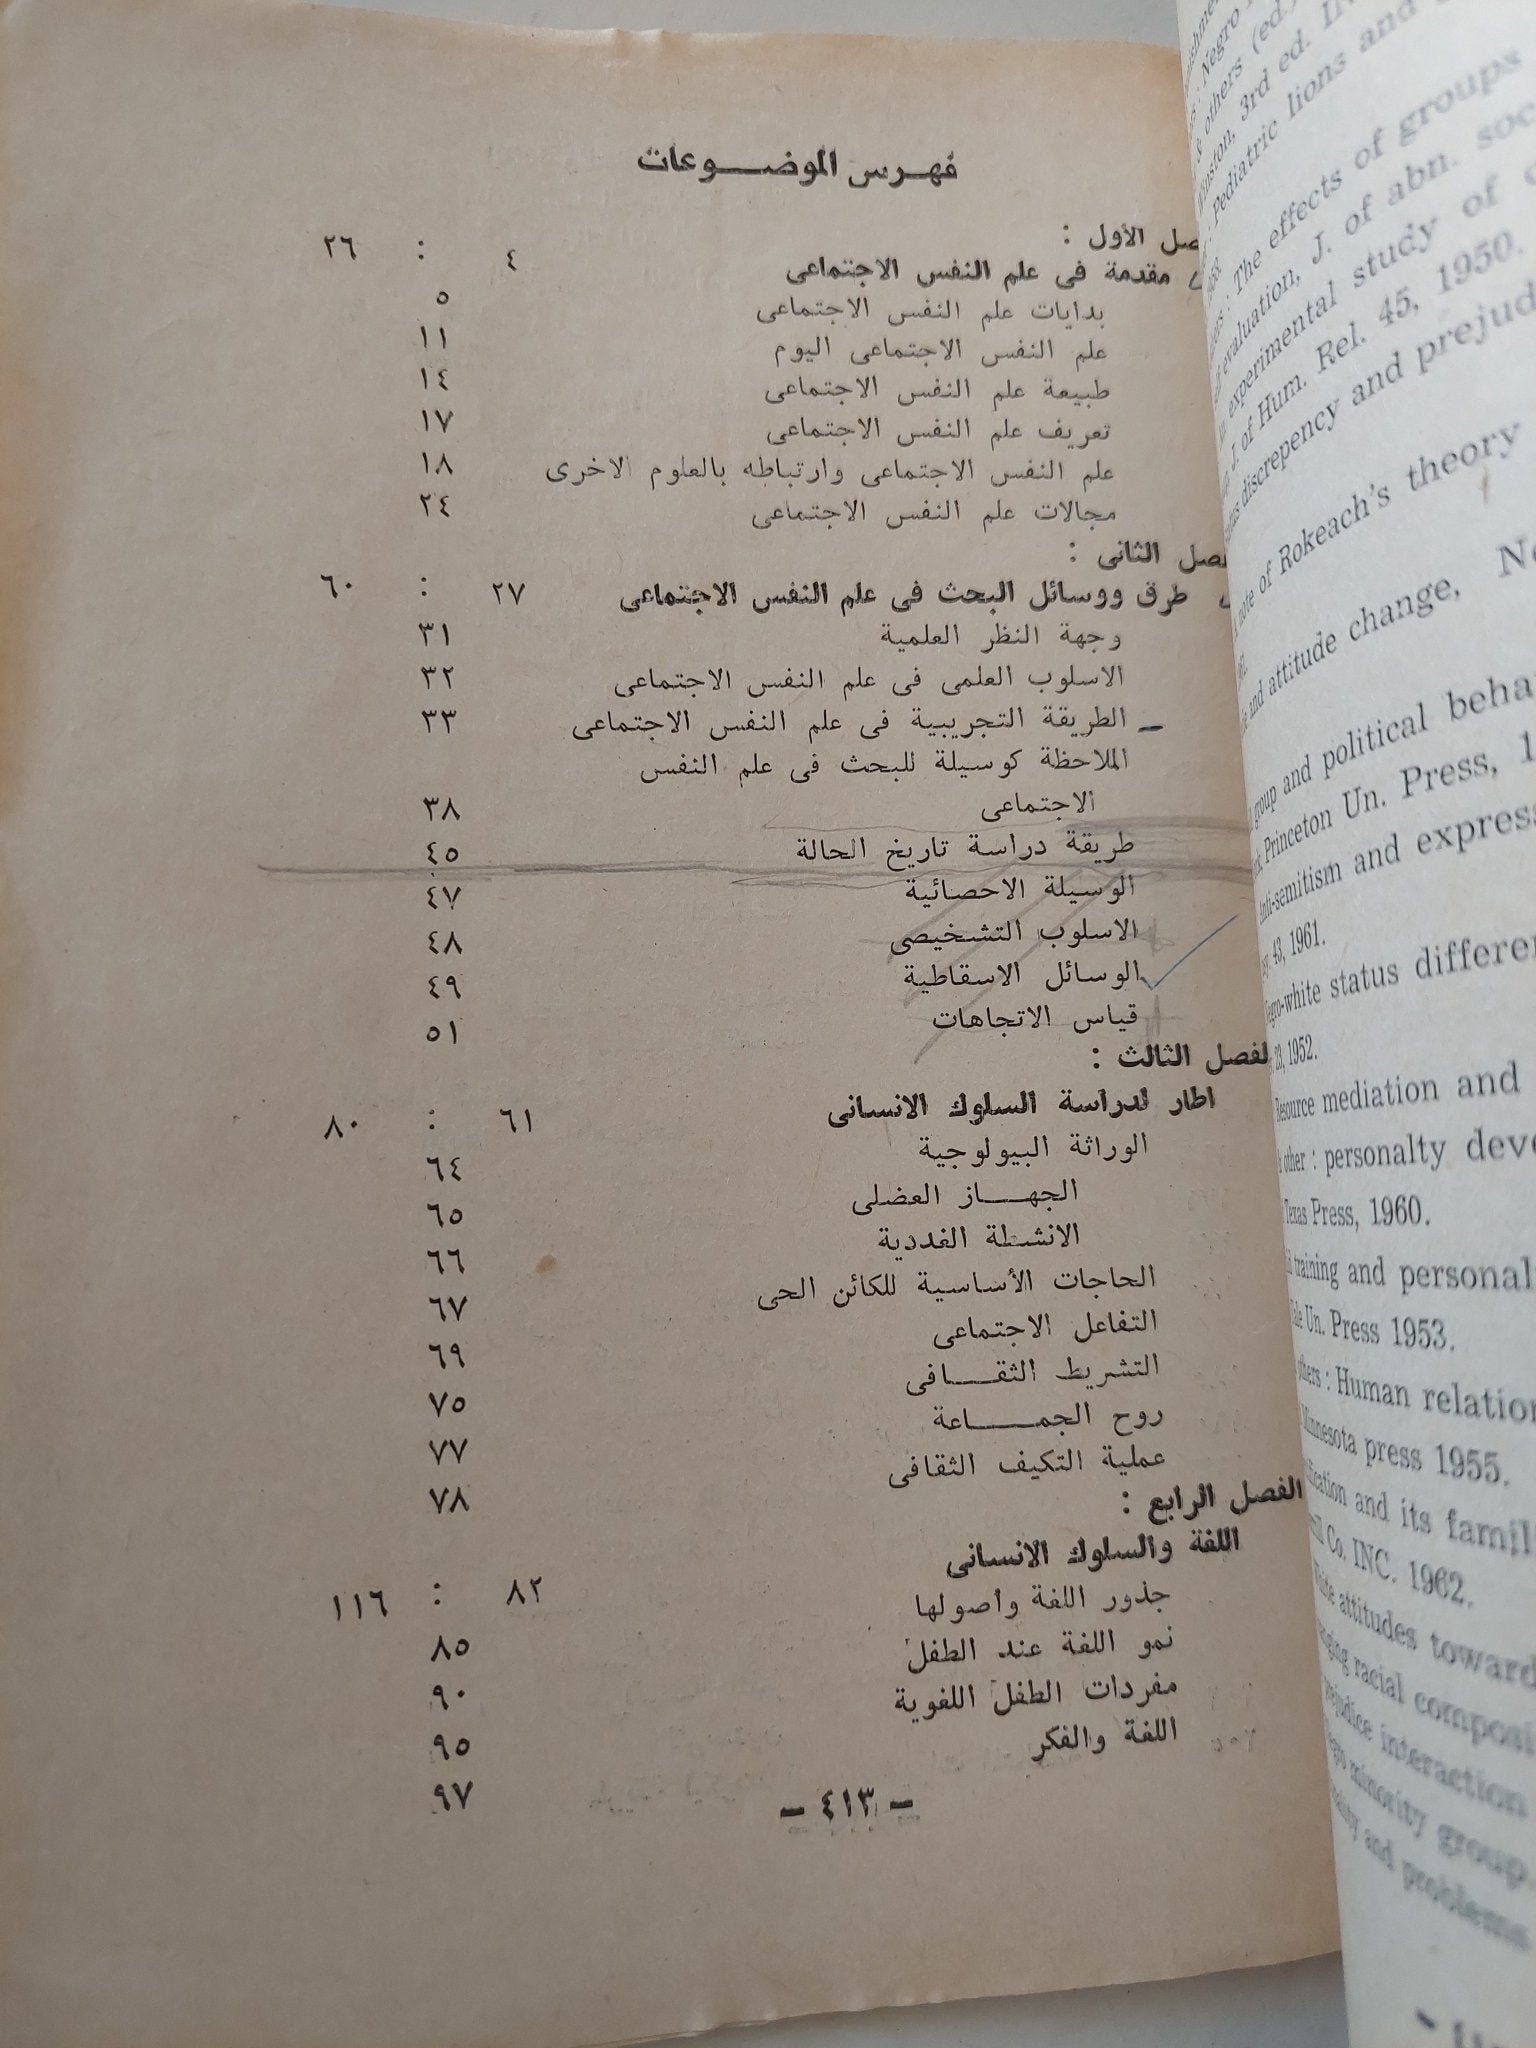 فهرس الموضوعات
صل الأول :
مقدمة فى علم النفس الاجتماعى ٤ : ٢٦
بدايات علم النفس الاجتماعى ٥
علم النفس الاجتماعى اليوم ١١
طبيعة علم النفس الاجتماعى ١٤
تعريف علم النفس الاجتماعى ١٧
علم النفس الاجتماعى وارتباطه بالعلوم الاخرى ١٨
مجالات علم النفس الاجتماعى ٢٤
فصل الثانى :
طرق ووسائل البحث فى علم النفس الاجتماعى ٢٧ : ٦٠
وجهة النظر العلمية ٣١
الاسلوب العلمى فى علم النفس الاجتماعى ٣٢
ــ الطريقة التجريبية فى علم النفس الاجتماعى ٣٣
الملاحظة كوسيلة للبحث فى علم النفس
الاجتماعى ٣٨
طريقة دراسة تاريخ الحالة ٤٥
الوسيلة الاحصائية ٤٧
الاسلوب التشخيصى ٤٨
الوسائل الاسقاطية ٤٩
قياس الاتجاهات ٥١
لفصل الثالث :
اطار لدراسة السلوك الانسانى ٦١ : ٨٠
الوراثة البيولوجية ٦٤
الجهــاز العضلى ٦٥
الانشطة الغددية ٦٦
الحاجات الأساسية للكائن الحى ٦٧
التفاعل الاجتماعى ٦٩
التشريط الثقــافى ٧٥
روح الجمــاعة ٧٧
عملية التكيف الثقافى ٧٨
الفصل الرابع :
اللغة والسلوك الانسانى ٨٢ : ١١٦
جذور اللغة وأصولها ٨٥
نمو اللغة عند الطفل ٩٠
مفردات الطفل اللغوية ٩٥
اللغة والفكر ٩٧
ــ ٤١٣ ــ
: Negro
& others (ed.)
Winston, 3rd ed.
Pediatric lions and
: The effects of groups
evaluation, J. of abn. soc
experimental study of
J. of Hum. Rel. 45, 1950.
discrepency and prejud
note of Rokeach's theory
and attitude change,
group and political beha
Princeton Un. Press, 1
Anti-semitism and express
43, 1961.
Negro-white status differen
23, 1952.
Resource mediation and
& other : personalty deve
Texas Press, 1960.
training and personal
Yale Un. Press 1953.
others : Human relation
Minnesota press 1955.
and its famil
Co. INC. 1962.
White attitudes toward
racial composi
prejudice interaction
minority group
and problems